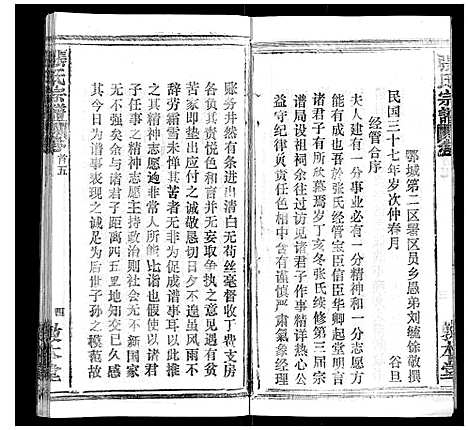 鄂城第二区署区员乡愚弟刘毓徐敬撰
民国三十七年岁次仲春月 谷旦
经管合序
夫人建有一分事业必有一分精神和一分志愿方
能有成也吾於张氏经管宝臣信臣华卿起堂明言
诸君子有所欣慕焉岁丁亥冬张氏续修第三届宗
谱局设祖祠余往谱局赠序精详诸君子作事精详热心公
益守纪律负责任色相中含有谨慎严肃气象经理
账务井然有条进出清白无苟丝毫督收丁费支房
各负其责悦色和言并无相欺取争执之意见遇有贫
苦家即垫出应付之诚敬恳切日夕不遑虽风吹雨
辞劳霜雪未惮其苦者无非为促成谱事耳以此推
之其精神志愿迥非常人所能比谱也假使以诸君
子任事之精神志愿主持政治则社会无不新国家
无不强矣余与诸君子距离四五里地知交已久感
其今日为谱事表现之诚足为后世子孙之模范故
张氏宗谱
卷首五
四
敦本堂
张氏宗谱
敦本堂